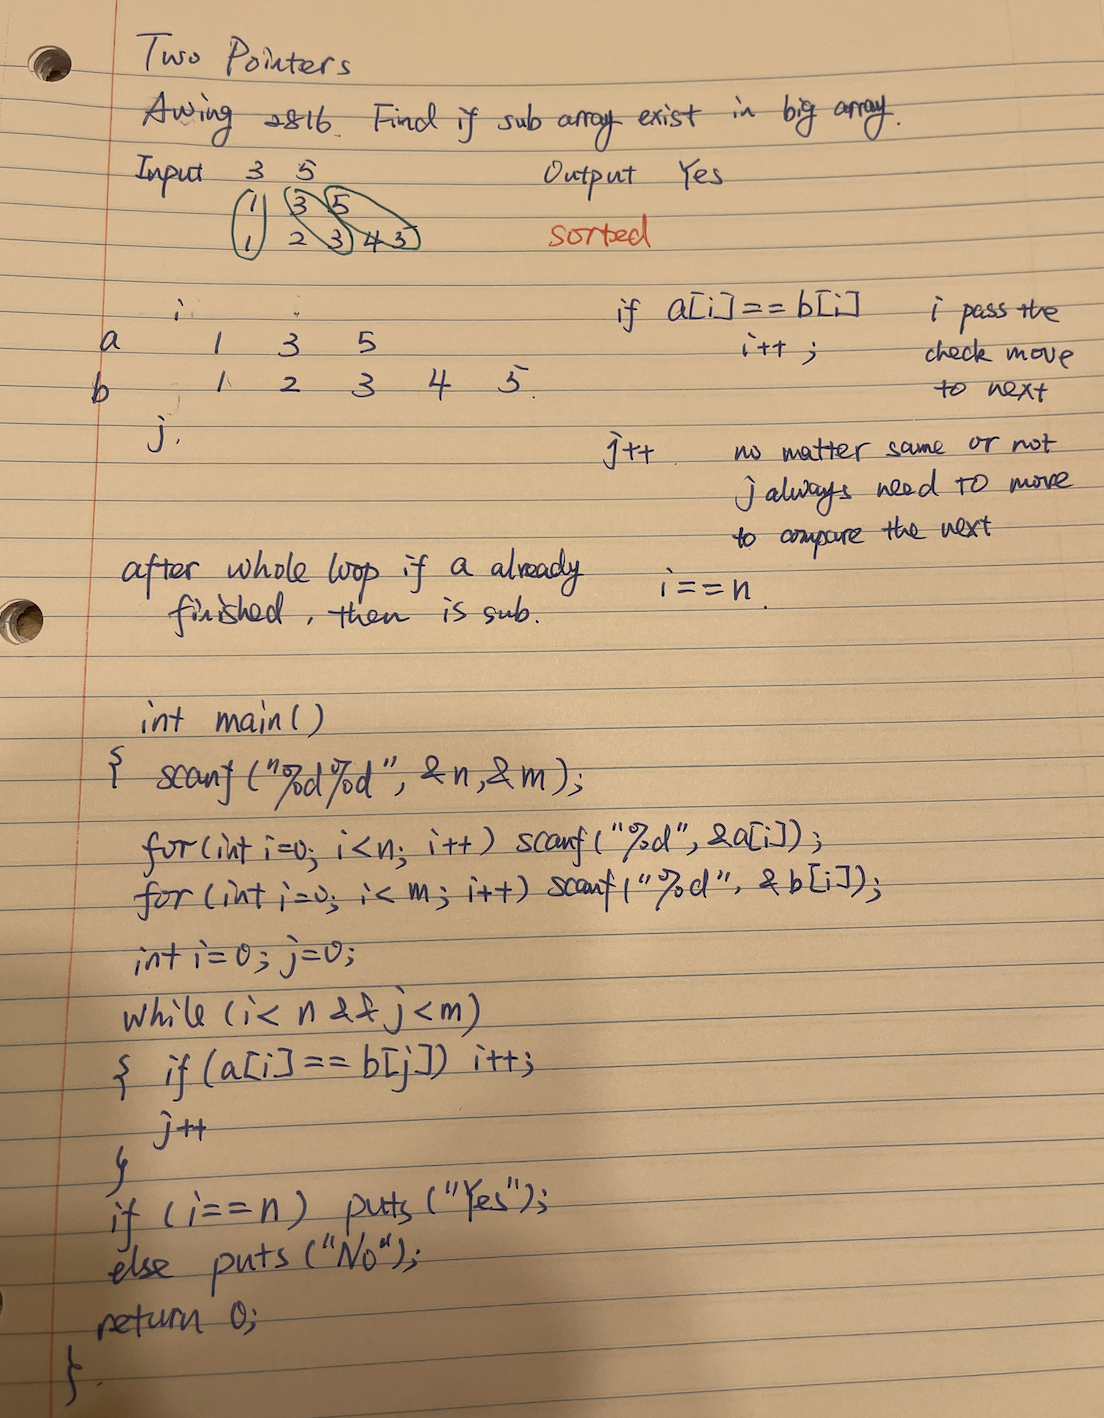 Two Pointers
Awing 2816. Find if sub array exist in big array.
Input 3 5 Output Yes
1 3 5
1 2 3 4 5 sorted
i if a[i]==b[i] i pass the
a 1 3 5 i++; check move
b 1 2 3 4 5. to next
j.
j++. no matter same or not
j always need TO move
to compare the next
after whole loop if a already i==n.
finished, then is sub.
int main()
{ scanf("%d%d", &n,&m);
for(int i=0; i<n; i++) scanf("%d", &a[i]);
for(int i=0; i<m; i++) scanf("%d", &b[i]);
int i=0; j=0;
while(i<n && j<m)
{ if(a[i]==b[j]) i++;
j++
}
if (i==n) puts("Yes");
else puts("No");
return 0;
}.